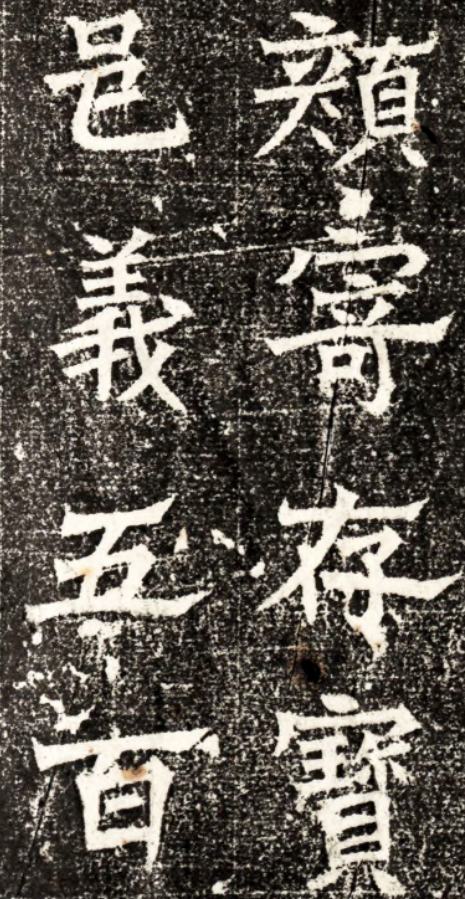 顏寄存寶
邑義五百